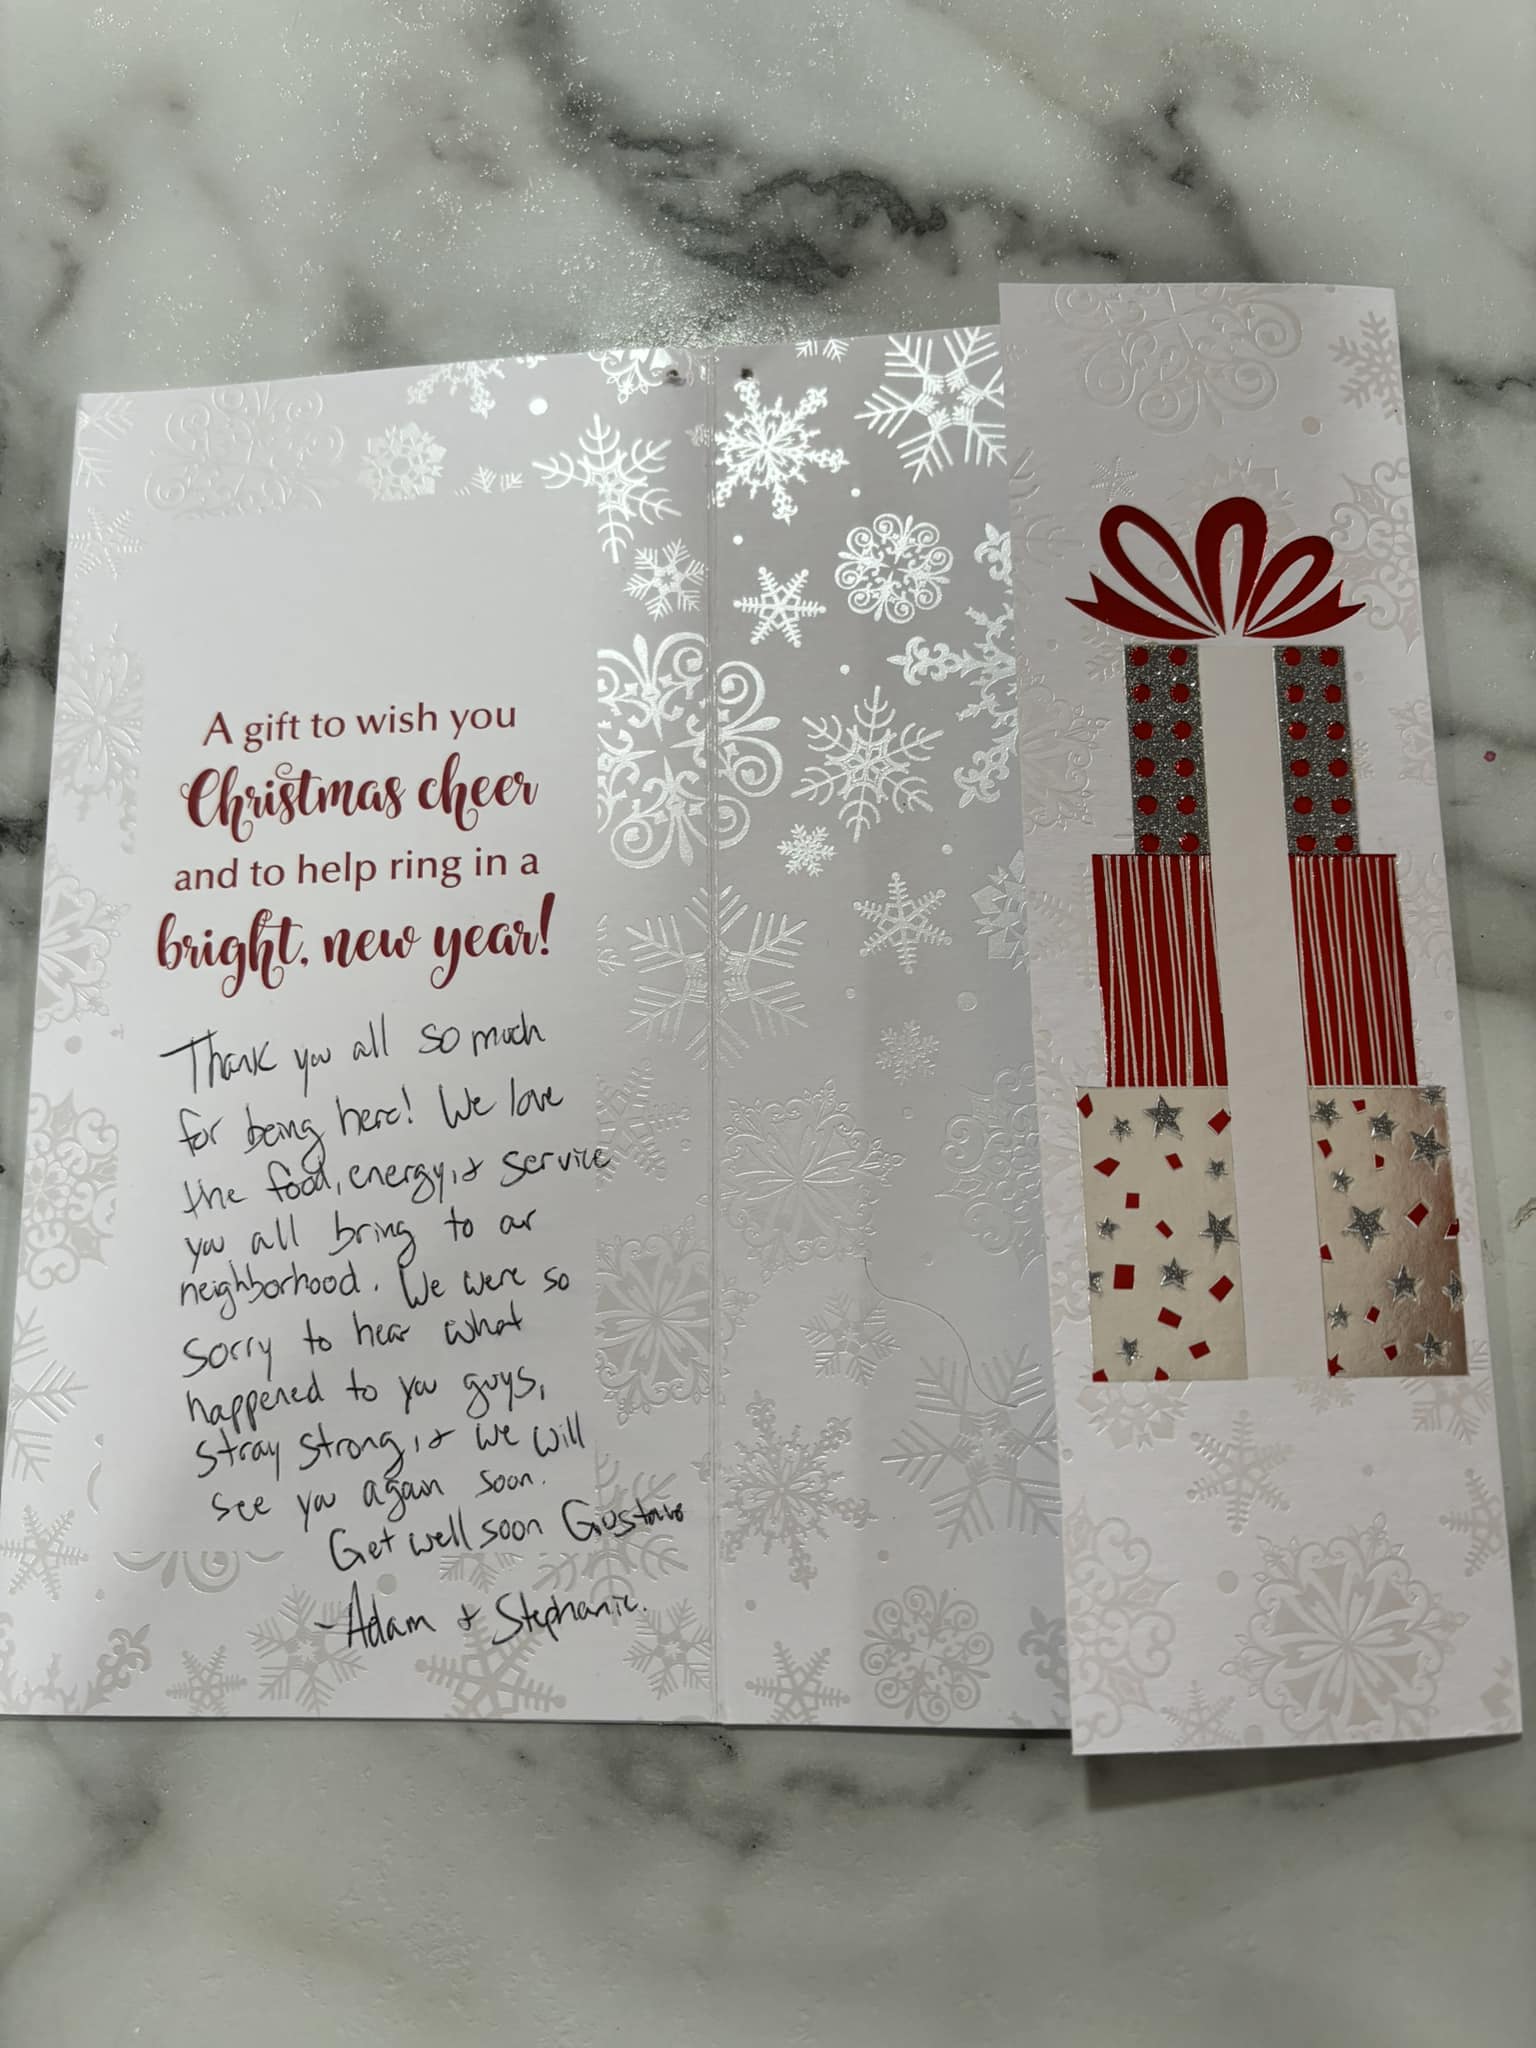 A gift to wish you
Christmas cheer
and to help ring in a
bright, new year!
Thank you all so much
for being here! We love
the food, energy, & service
you all bring to our
neighborhood. We were so
sorry to hear what
happened to you guys,
stray strong, & we will
see you again soon.
Get well soon Gustavo
- Adam & Stephanie.